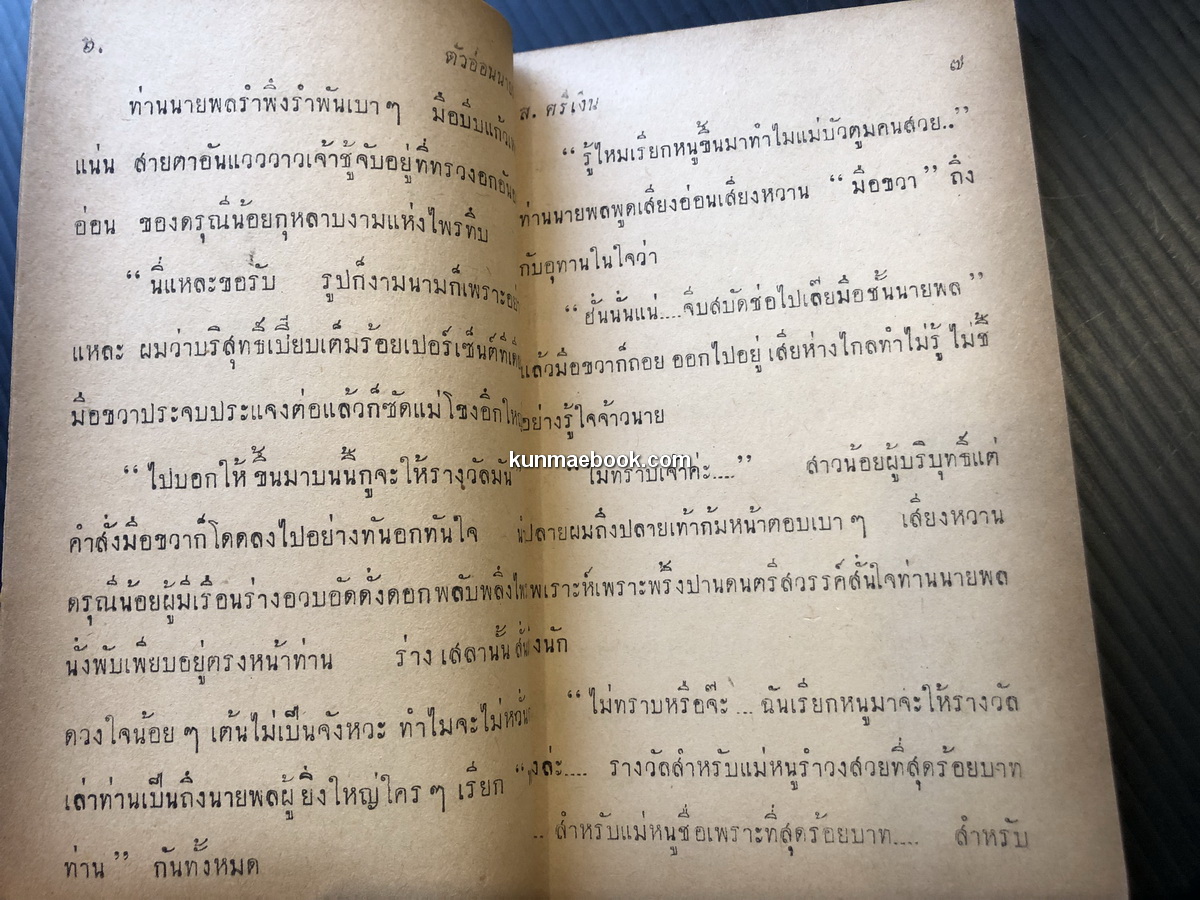 ๖.
ตัวอ่อนนาง
ท่านนายพลรำพึงรำพันเบา ๆ มือบีบแก้ว
แน่น สายตาอันแวววาวเจ้าชู้จับอยู่ที่ทรวงอกอัน
อ่อน ของดรุณีน้อยกุหลาบงามแห่งไพรทิบ
“ นี่แหละขอรับ รูปก็งามนามก็เพราะ
แหละ ผมว่าบริสุทธิ์เบี๊ยบเต็มร้อยเปอร์เซ็นต์ที่
มือขวาประจบประแจงต่อแล้วก็ซัดแม่โขงอีก
“ ไปบอกให้ ขึ้นมาบนนี้กูจะให้รางวัลมัน
คำสั่งมือขวาก็โดดลงไปอย่างทันอกทันใจ
ดรุณีน้อยผู้มีเรือนร่างอวบอัดดั่งดอกพลับพลึง
นั่งพับเพียบอยู่ตรงหน้าท่าน ร่าง เสลานั้น
ดวงใจน้อย ๆ เต้นไม่เป็นจังหวะ ทำไมจะไม่
เล่าท่านเป็นถึงนายพลผู้ ยิ่งใหญ่ใคร ๆ เรียก
ท่าน ” กันทั้งหมด
๗
ส. ศรีเงิน
“ รู้ไหมเรียกหนูขึ้นมาทำไมแม่บัวตูมคนสวย..”
ท่านนายพลพูดเสียงอ่อนเสียงหวาน “ มือขวา ” ถึง
กับอุทานในใจว่า
“ ฮั่นนั่นแน่....จีบสบัดช่อไปเลียมือชั้นนายพล ”
แล้วมือขวาก็ถอย ออกไปอยู่ เสียห่างไกลทำไม่รู้ ไม่ชี้
อย่างรู้ใจจ้าวนาย
kunmaebook.com
ไม่ทราบเจ้าค่ะ....” สาวน้อยผู้บริบุทธิ์แต่
ปลายผมถึงปลายเท้าก้มหน้าตอบเบา ๆ เสียงหวาน
ไพเราะห์เพราะพริ้งปานดนตรีสวรรค์สั่นใจท่านนายพล
ยิ่งนัก
“ ไม่ทราบหรือจ๊ะ ... ฉันเรียกหนูมาจะให้รางวัล
ล่ะ.... รางวัลสำหรับแม่หนูรำวงสวยที่สุดร้อยบาท
.. สำหรับแม่หนูชื่อเพราะที่สุดร้อยบาท.... สำหรับ